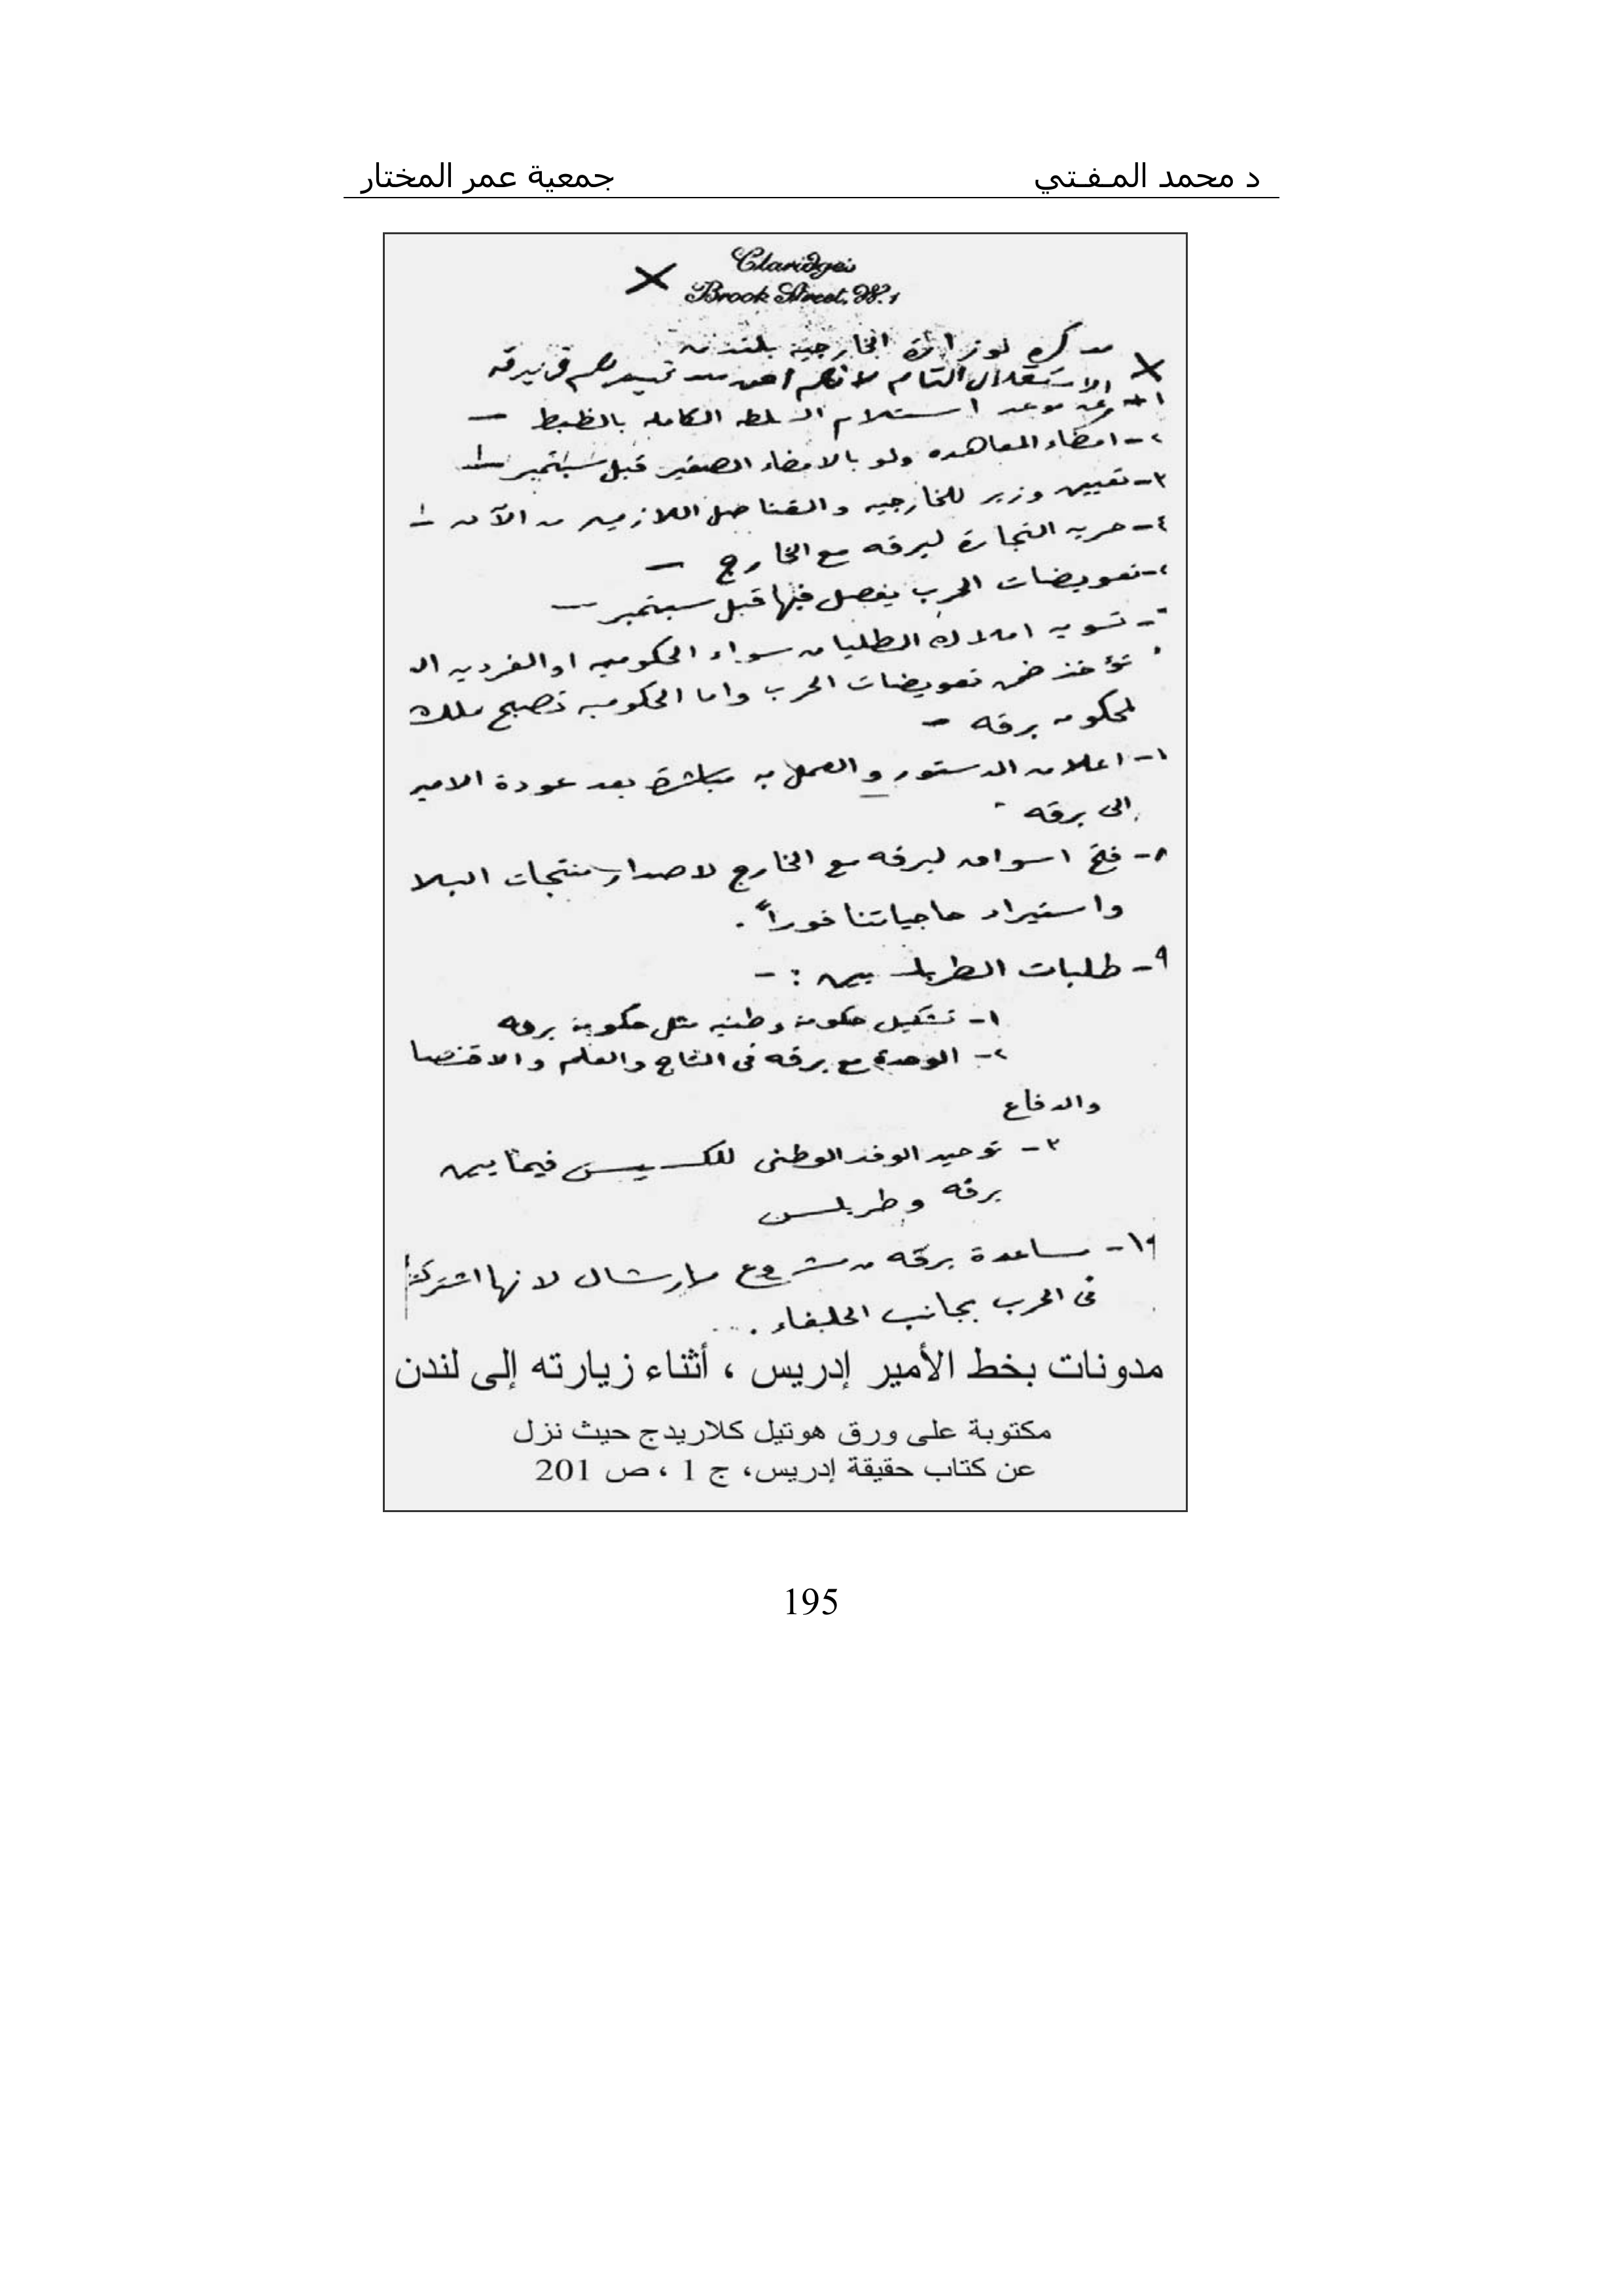 د محمد المـفـتي
جمعية عمر المختار
Claridge's
Brook Street, W.1
مذكره لوزارة الخارجية بلندن
الاستقلال التام لا
١- عن موعد استلام السلطه الكامله بالظبط -
٢- امضاء المعاهده ولو بالامضاء الصغير قبل سبتمبر
٣- تعيين وزير للخارجيه والقناصل اللازمين من الآن
٤- حريه التجارة لبرقه مع الخارج -
- تعويضات الحرب يفصل فيها قبل سبتمبر -
- تسويه املاك الطليان سواء الحكوميه او الفرديه ال
تؤخذ ضمن تعويضات الحرب واما الحكوميه تصبح ملك
لحكومه برقه -
- اعلان الدستور والعمل به مباشرة بعد عودة الامير
الى برقه
٨- فتح اسواق لبرقه مع الخارج لاصدار منتجات البلا
واستيراد حاجياتنا فوراً .
٩- طلبات الطرابلسيين : -
١- تشكيل حكومة وطنيه مثل حكومة برقه
٢- الوحدة مع برقه فى التاج والعلم والاقتصا
والدفاع
٣- توحيد الوفد الوطنى فيما بين
برقه وطرابلس
١٠- مساعدة برقه من مشروع مارشال لانها اشتركت
فى الحرب بجانب الحلفاء . . .
مدونات بخط الأمير إدريس ، أثناء زيارته إلى لندن
مكتوبة على ورق هوتيل كلاريدج حيث نزل
عن كتاب حقيقة إدريس، ج 1 ، ص 201
195